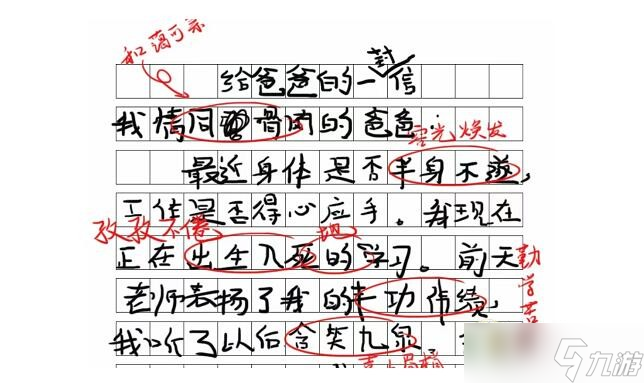 和蔼可亲
封
给爸爸的一信
我情同骨肉的爸爸:
容光焕发
最近身体是否半身不遂,
工作是否得心应手。我现在
孜孜不倦 地
正在出生入死的学习。前天
勤学苦
老师表扬了我的丰功伟绩,
我听了以后含笑九泉.
喜上眉梢
九游